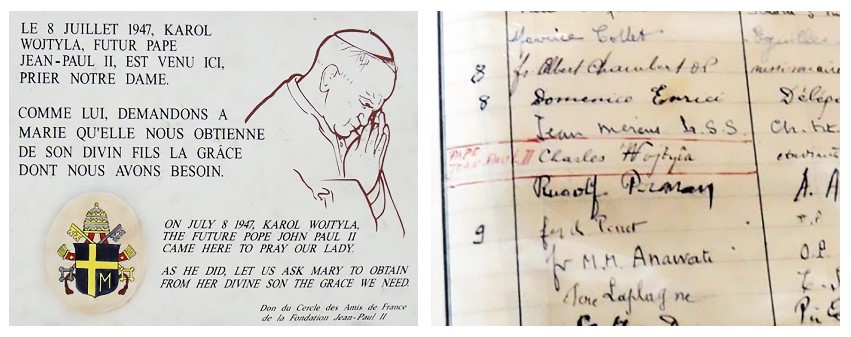 LE 8 JUILLET 1947, KAROL
WOJTYLA, FUTUR PAPE
JEAN-PAUL II, EST VENU ICI,
PRIER NOTRE DAME.
COMME LUI, DEMANDONS A
MARIE QU'ELLE NOUS OBTIENNE
DE SON DIVIN FILS LA GRÂCE
DONT NOUS AVONS BESOIN.
M
ON JULY 8 1947, KAROL WOJTYLA,
THE FUTURE POPE JOHN PAUL II
CAME HERE TO PRAY OUR LADY.
AS HE DID, LET US ASK MARY TO OBTAIN
FROM HER DIVINE SON THE GRACE WE NEED.
Don du Cercle des Amis de France
de la Fondation Jean-Paul II
Maurice Collet
8 fr Albert Chambert O.P. missionnaire
8 Domenico Enrici Délég
Jean
PAPE JEAN-PAUL II Charles Wojtyła
Rudolf A. A
9
fr M.M. Anawati O.P.
Laplagne